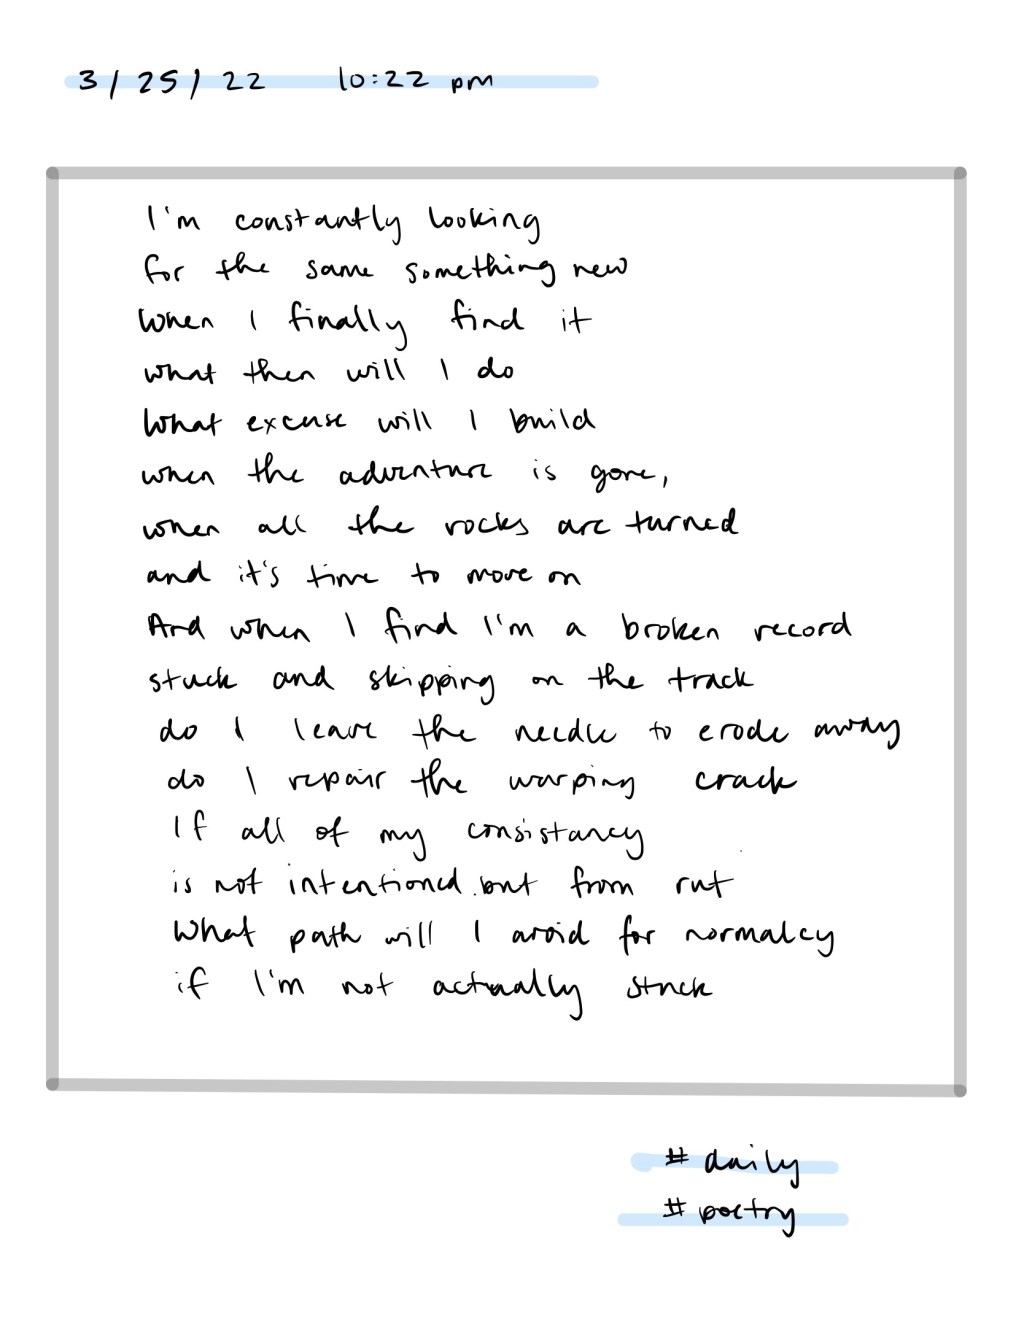 3/25/22 10:22 pm
I'm constantly looking
for the same something new
When I finally find it
what then will I do
What excuse will I build
when the adventure is gone,
when all the rocks are turned
and it's time to move on
And when I find I'm a broken record
stuck and skipping on the track
do I leave the needle to erode away
do I repair the warping crack
If all of my consistancy
is not intentioned but from rut
What path will I avoid for normalcy
if I'm not actually stuck
# daily
# poetry